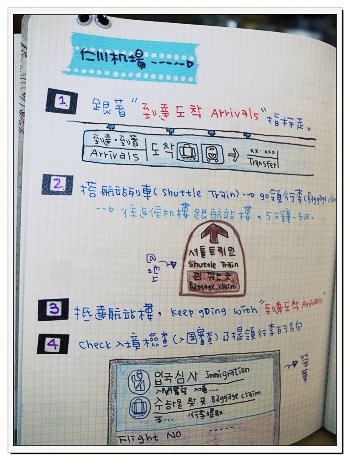 仁川机場 -----→
1 跟著"到達도착 Arrivals"指標走。
到達·到着 도착
Arrivals → Transfer
2 搭航站列車(Shuttle Train) --→ go領行李(Baggage claim)
--→ 往返候机樓跟航站樓, 5分鐘一班。
셔틀트레인
Shuttle Train
짐 찾는 곳
Baggage claim
3 抵達航站樓, keep going with "到達도착 Arrivals"
4 Check 入境檢查(入國審查)及提領行李的方向
입국심사 immigration
入國審查
수하물 찾는 곳 Baggage claim
行李提取
Flight NO -----